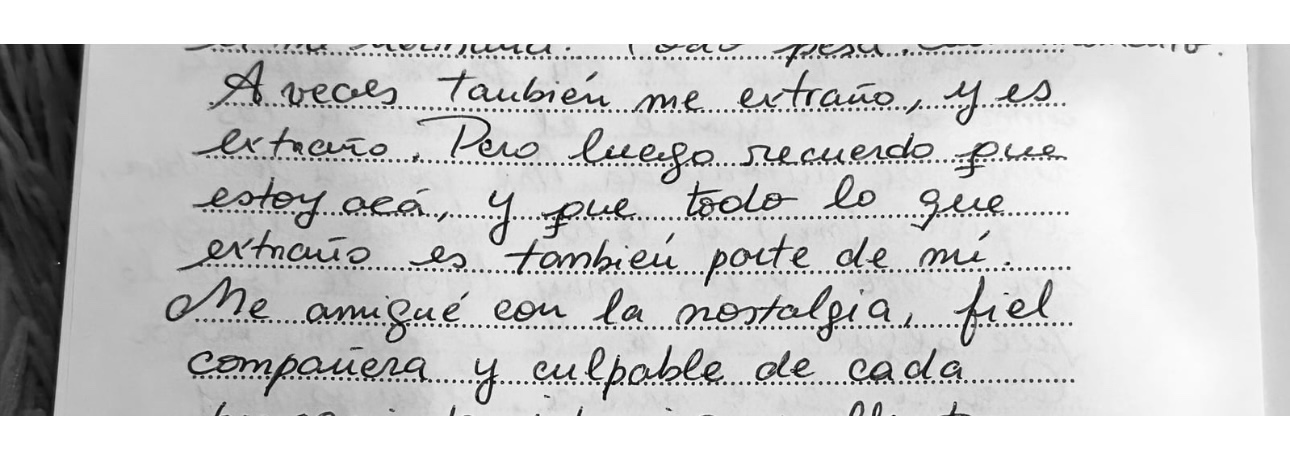 A veces también me extraño, y es
extraño. Pero luego recuerdo que
estoy acá, y que todo lo que
extraño es también parte de mí.
Me amigué con la nostalgia, fiel
compañera y culpable de cada